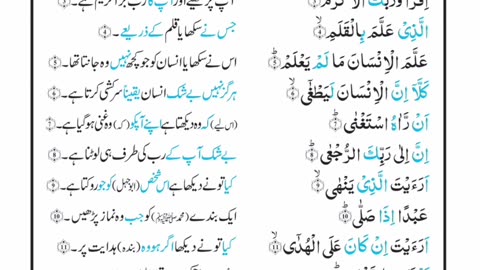 اِقْرَاْ وَرَبُّكَ الْاَكْرَمُ ۙ﴿۳﴾ آپ پڑھیے اور آپ کا رب بڑا کریم ہے۔﴿۳﴾
الَّذِیْ عَلَّمَ بِالْقَلَمِ ۙ﴿۴﴾ جس نے سکھایا قلم کے ذریعے۔﴿۴﴾
عَلَّمَ الْاِنْسَانَ مَا لَمْ یَعْلَمْ ؕ﴿۵﴾ اس نے سکھایا انسان کو جو کچھ نہیں وہ جانتا تھا۔﴿۵﴾
كَلَّاۤ اِنَّ الْاِنْسَانَ لَیَطْغٰۤی ۙ﴿۶﴾ ہرگز نہیں بے شک انسان یقیناً سرکشی کرتا ہے۔﴿۶﴾
اَنْ رَّاٰهُ اسْتَغْنٰی ؕ﴿۷﴾ (اس لیے) کہ وہ دیکھتا ہے اپنے آپکو (کہ) وہ غنی ہوگیا ہے۔﴿۷﴾
اِنَّ اِلٰی رَبِّكَ الرُّجْعٰی ؕ﴿۸﴾ بے شک آپ کے رب کی طرف ہی لوٹنا ہے۔﴿۸﴾
اَرَءَیْتَ الَّذِیْ یَنْهٰی ۙ﴿۹﴾ کیا تو نے دیکھا ہے اس شخص (ابوجہل) کو جو روکتا ہے۔﴿۹﴾
عَبْدًا اِذَا صَلّٰی ؕ﴿۱۰﴾ ایک بندے (محمد ﷺ) کو جب وہ نماز پڑھیں۔﴿۱۰﴾
اَرَءَیْتَ اِنْ كَانَ عَلَی الْهُدٰۤی ۙ﴿۱۱﴾ کیا تو نے دیکھا اگر ہو وہ (بندہ) ہدایت پر۔﴿۱۱﴾